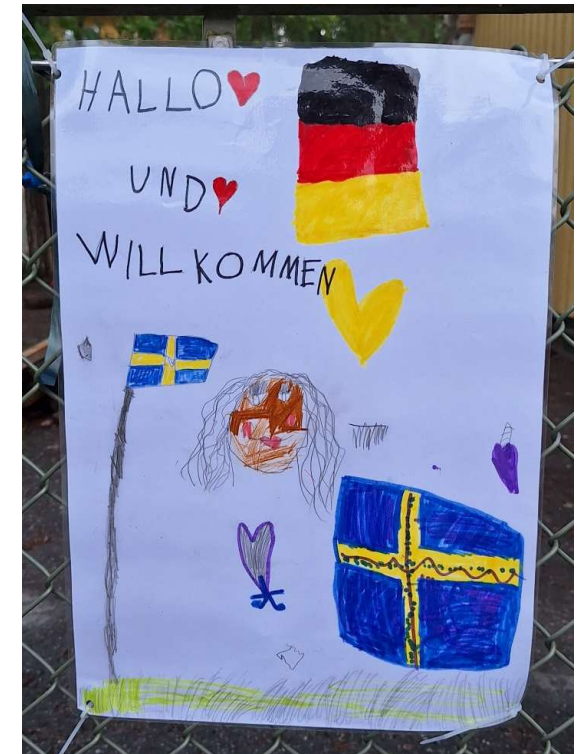 HALLO
UND
WILLKOMMEN